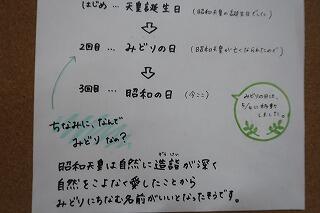 はじめ … 天皇誕生日 (昭和天皇の誕生日でした)
2回目 … みどりの日 (昭和天皇が亡くなられたので)
3回目 … 昭和の日 (今ここ)
みどりの日は、
5/4に移動
しました。
ちなみに、なんで
みどりなの?
昭和天皇は自然に造詣が深く
ぞうけい
自然をこよなく愛したことから
みどりにちなむ名前がいいとなったそうです。